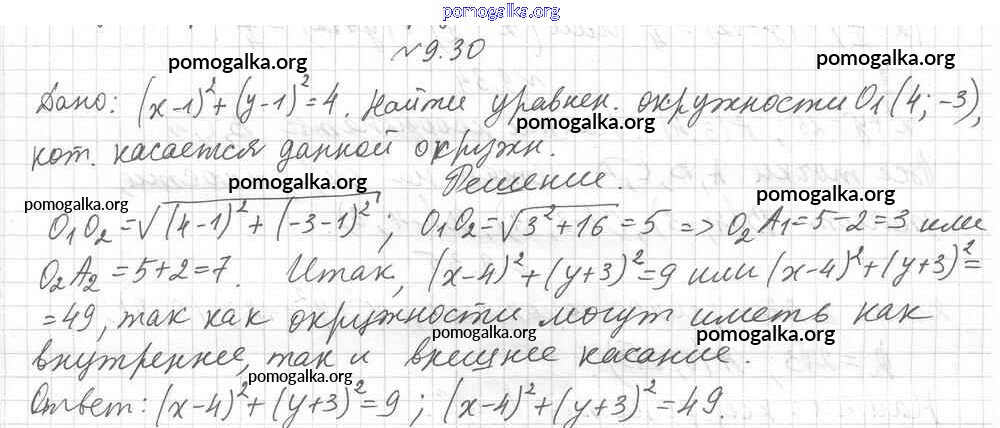 pomogalka.org
№9.30
pomogalka.org pomogalka.org
Дано: (x-1)²+(y-1)²=4. Найти уравнен. окружности O₁(4;-3),
pomogalka.org
кот. касается данной окружн.
Решение.
pomogalka.org pomogalka.org pomogalka.org
O₁O₂=√((4-1)²+(-3-1)²); O₁O₂=√(3²+16)=5 => O₂A₁=5-2=3 или
O₂A₂=5+2=7. Итак, (x-4)²+(y+3)²=9 или (x-4)²+(y+3)²=
=49, так как окружности могут иметь как
pomogalka.org pomogalka.org
внутреннее, так и внешнее касание.
pomogalka.org
Ответ: (x-4)²+(y+3)²=9; (x-4)²+(y+3)²=49.